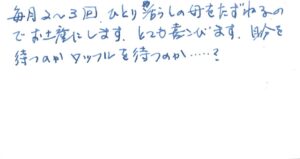 毎月2〜3回、ひとり暮らしの母をたずねるの
でお土産にします。とても喜びます。自分を
待つのかワッフルを待つのか……?